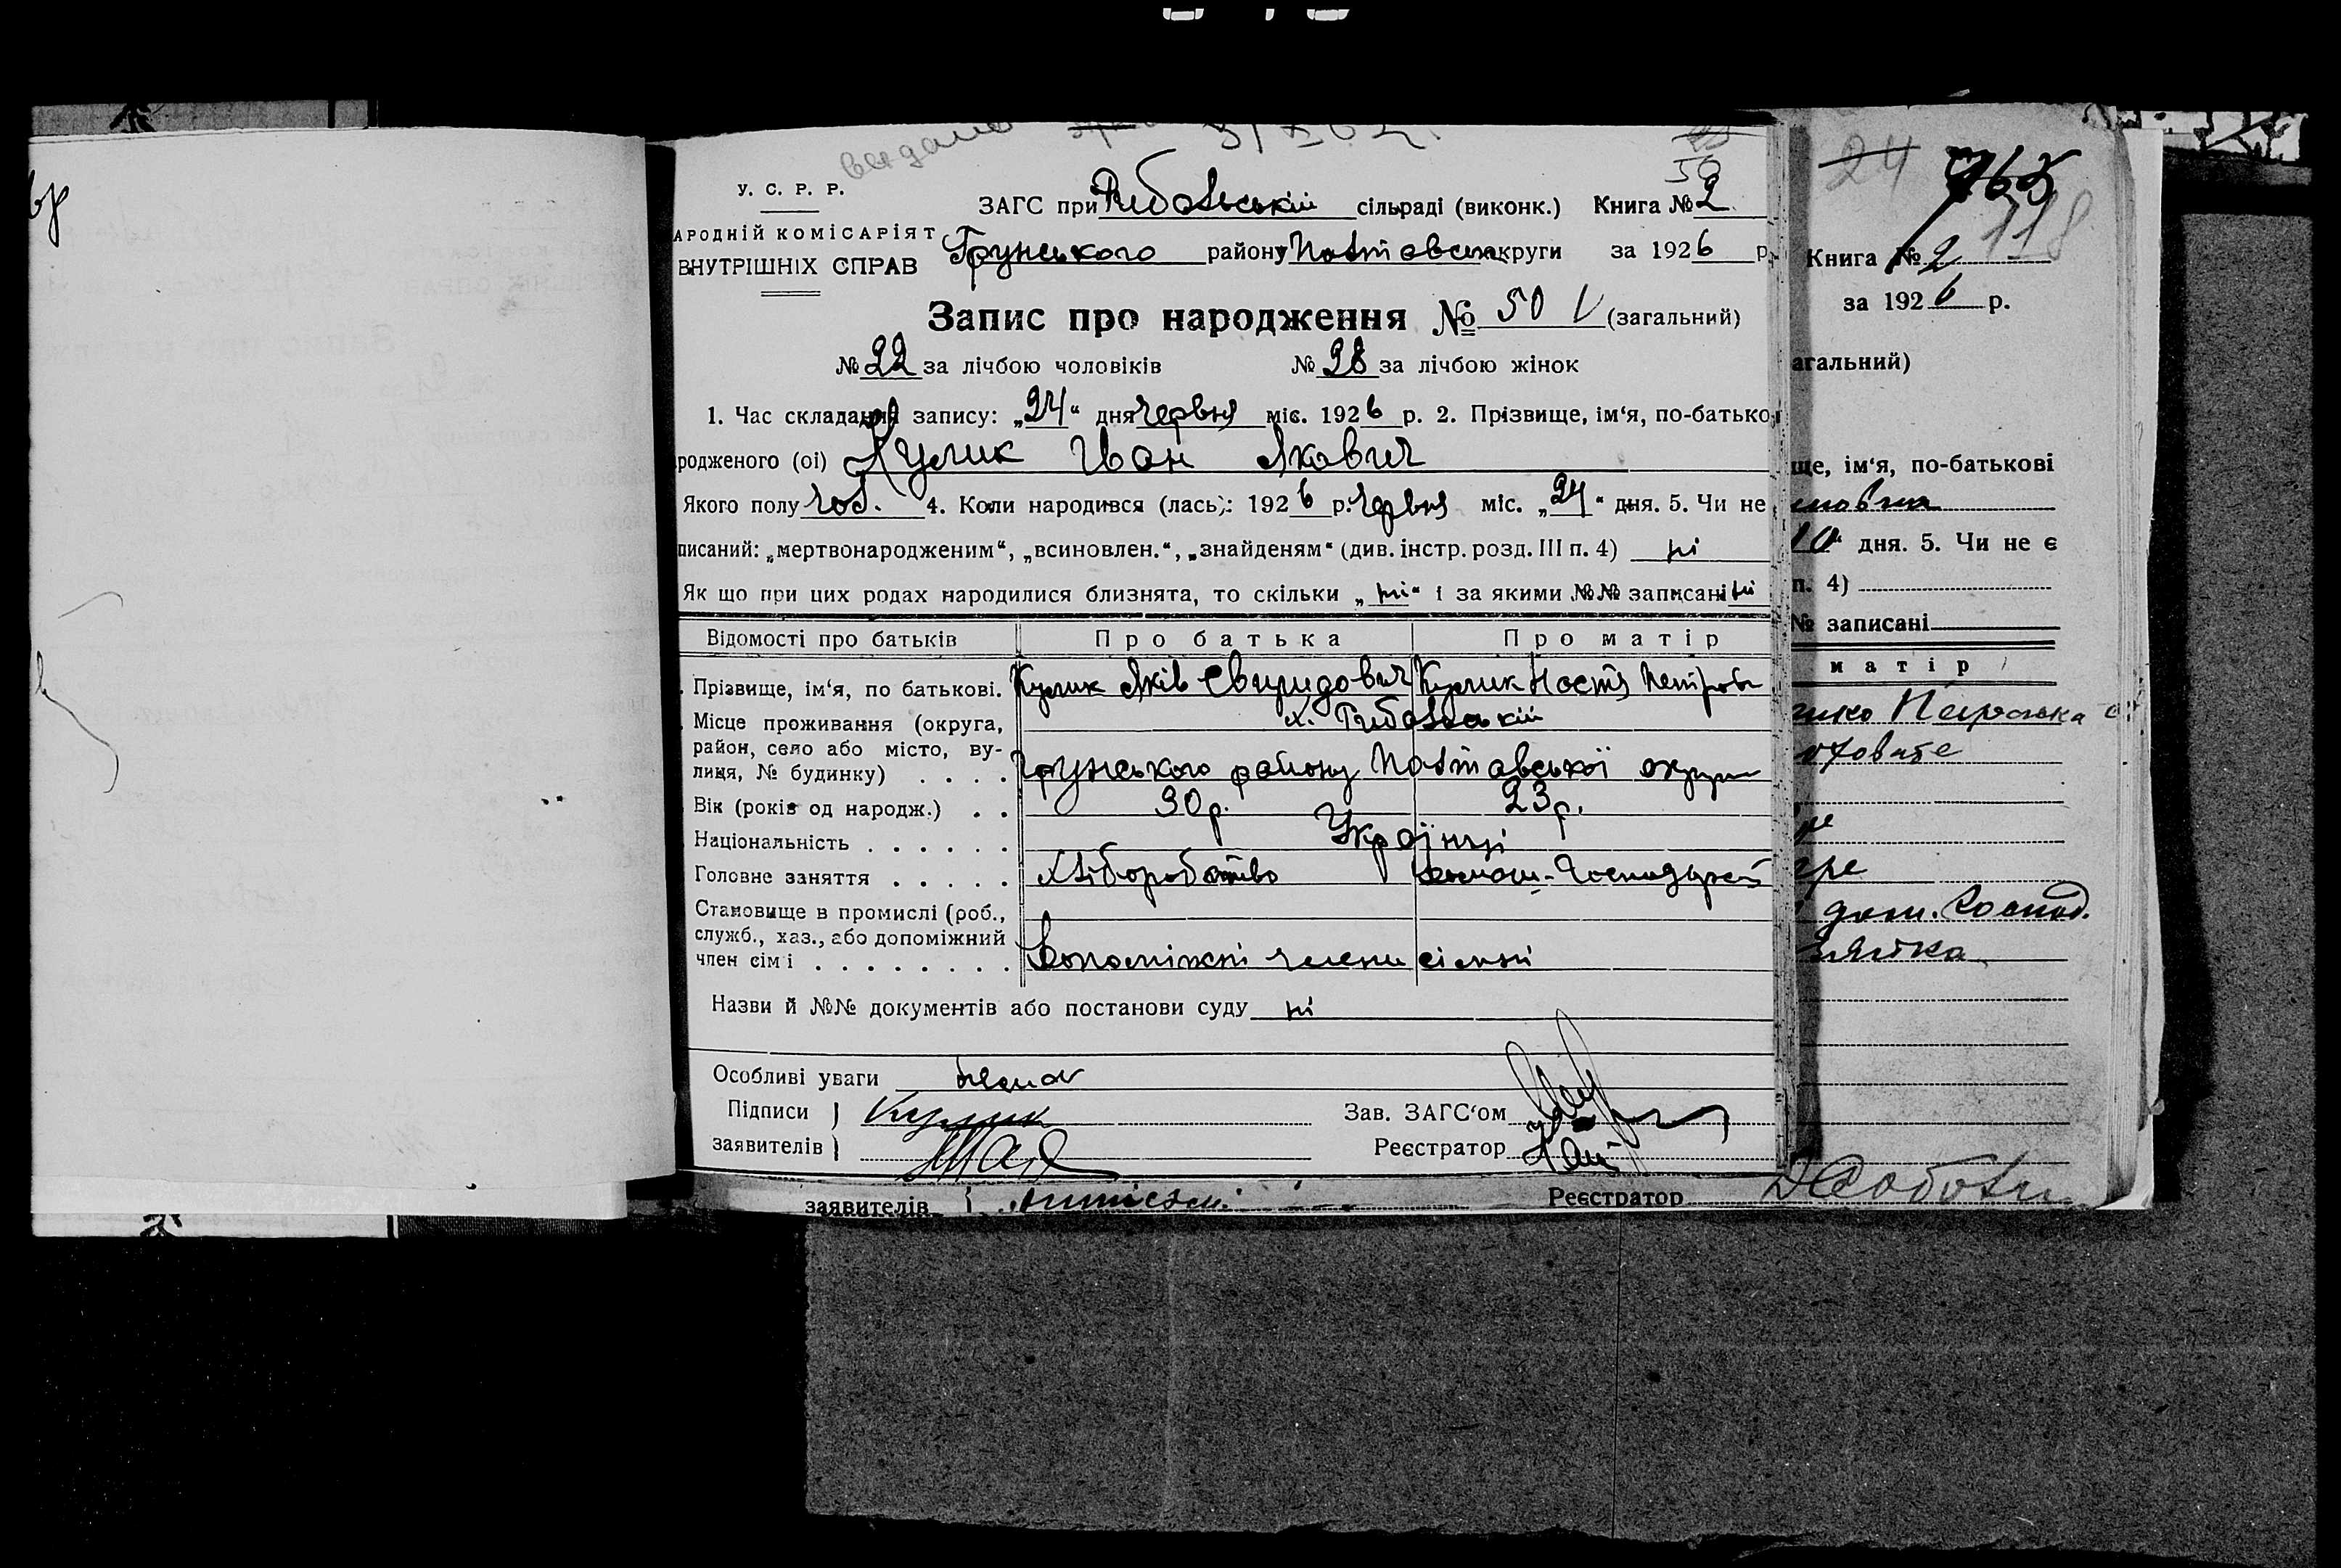 видано
50
У. С. Р. Р.
ЗАГС при Рибальській сільраді (виконк.) Книга № 2
АРОДНІЙ КОМІСАРІЯТ
ВНУТРІШНІХ СПРАВ
Грунського району Полтавськ округи за 1926 р.
Запис про народження № 50 (загальний)
№ 22 за лічбою чоловіків № 28 за лічбою жінок
1. Час складання запису: „24“ дня червня міс. 1926 р. 2. Прізвище, ім‘я, по-батько
родженого (ої) Кулик Іван Якович
Якого полу чол. 4. Коли народився (лась): 1926 р. червня міс. „24“ дня. 5. Чи не
писаний: „мертвонародженим“, „всиновлен.“, „знайденям“ (див. інстр. розд. III п. 4) ні
Як що при цих родах народилися близнята, то скільки „ні“ і за якими №№ записані ні
Відомості про батьків Про батька Про матір
Прізвище, ім‘я, по батькові. Кулик Яків Свиридович Кулик Настя Петров
Місце проживання (округа, х. Рибальській
район, село або місто, ву-
лиця, № будинку) . . . . Грунського району Полтавської округи
Вік (років од народж.) . . 30 р. 23 р.
Національність . . . . . . Українці
Головне заняття . . . . . Хліборобство домаш. господарст
Становище в промислі (роб.,
служб., хаз., або допоміжний
член сім‘ї . . . . . . . . Допоміжні члени сімні
Назви й №№ документів або постанови суду ні
Особливі уваги немає
Підписи } Кулик Зав. ЗАГС‘ом
заявителів } Реєстратор
заявителів { Реєстратор
24
118
Книга № 2
за 1926 р.
агальний)
ще, ім‘я, по-батькові
10“ дня. 5. Чи не є
п. 4)
№ записані
матір
дом. господ.